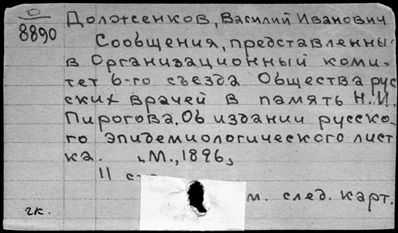 О
8890
Долженков, Василий Иванович
Сообщения, представленны
в Организационный коми-
тет 6-го съезда Общества рус
ских врачей в память Н.И.
Пирогова. Об издании русско-
го эпидемиологического лист
ка. М., 1896,
11
м. след. карт.
гк.